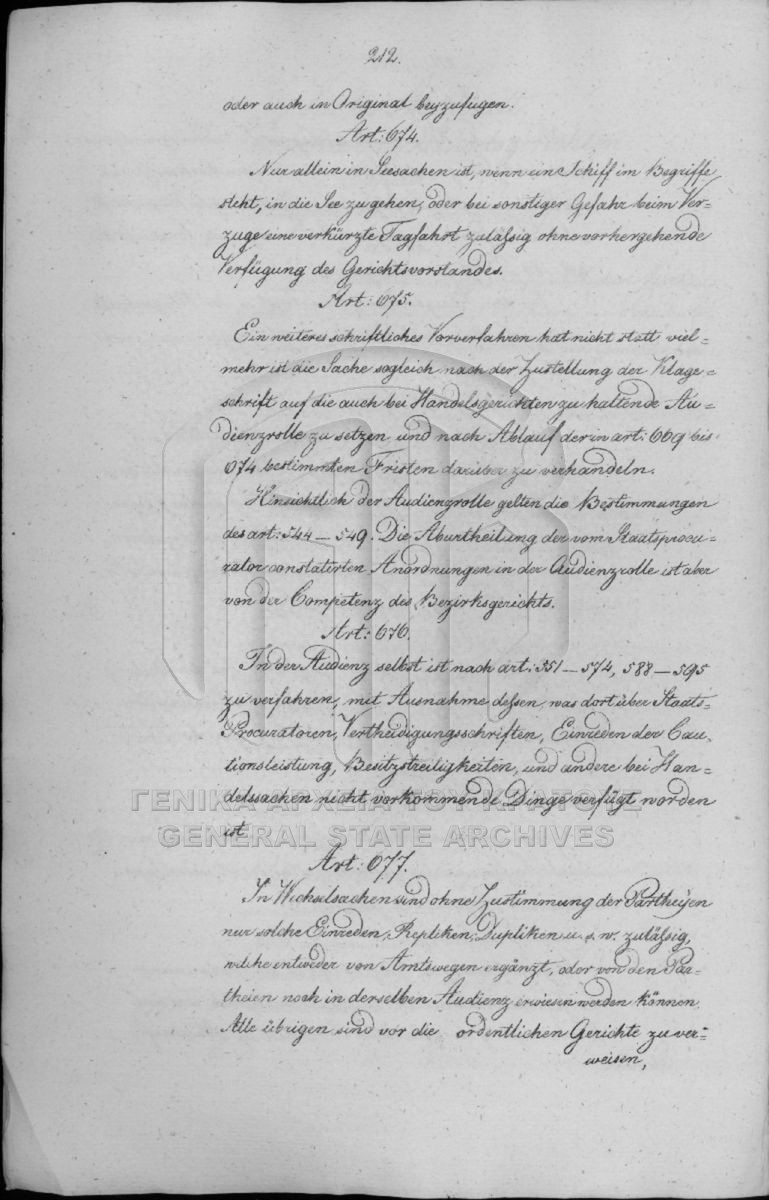 212.
oder auch in Original beyzufugen.
Art: 674.
Nur allein in Seesachen ist, wenn ein Schiff im Begriffe
steht, in die See zu gehen, oder bei sonstiger Gefahr beim Ver=
zuge eine verkürzte Tagfahrt zuläßig ohne vorhergehende
Verfügung des Gerichtsvorstandes.
Art: 675.
Ein weiteres schriftliches Vorverfahren hat nicht statt viel=
mehr ist die Sache sogleich nach der Zustellung der Klage=
schrift auf die auch bei Handelsgerichten zu haltende Au=
dienzrolle zu setzen und nach Ablauf der in art: 669 bis
674 bestimmten Fristen darüber zu verhandeln.
Hinsichtlich der Audienzrolle gelten die Bestimmungen
des art: 544 — 549. Die Aburtheilung der vom Staatsprocu=
rator constatirten Anordnungen in der Audienzrolle ist aber
von der Competenz des Bezirksgerichts.
Art: 676.
In der Audienz selbst ist nach art: 551 — 574, 588 — 595
zu verfahren, mit Ausnahme dessen, was dort über Staats=
Procuratoren, Vertheidigungsschriften, Einreden der Cau=
tionsleistung, Besitzstreitigkeiten, und andere bei Han=
delssachen nicht vorkommende Dinge verfügt worden
ist.
Art: 677.
In Wechselsachen sind ohne Zustimmung der Partheyen
nur solche Einreden, Repliken, Dupliken u. s. w. zuläßig,
welche entweder von Amtswegen ergänzt, oder von den Par=
theien noch in derselben Audienz erwiesen werden können.
Alle übrigen sind vor die ordentlichen Gerichte zu ver=
weisen,
ΓΕΝΙΚΑ ΑΡΧΕΙΑ ΤΟΥ ΚΡΑΤΟΥΣ
GENERAL STATE ARCHIVES